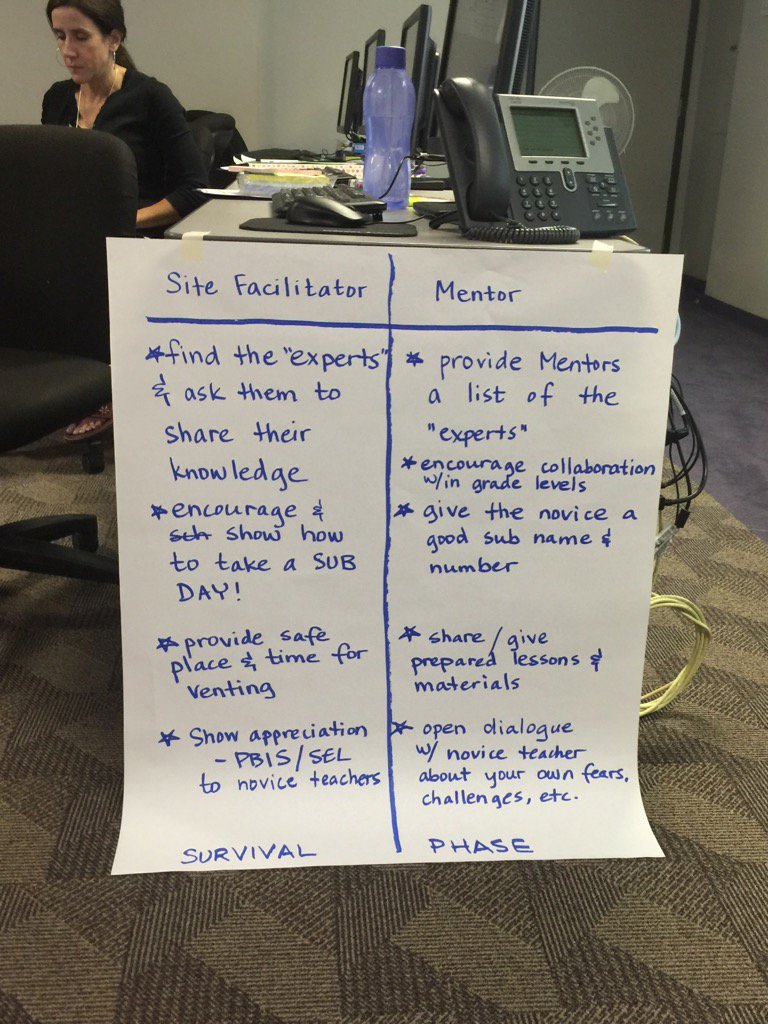 Site Facilitator
★find the "experts"
& ask them to
share their
knowledge
★encourage &
sch show how
to take a SUB
DAY!
★provide safe
place & time for
venting
★ Show appreciation
- PBIS/SEL
to novice teachers
SURVIVAL
Mentor
★ provide Mentors
a list of the
"experts"
★encourage collaboration
w/in grade levels
★ give the novice a
good sub name &
number
★ share/give
prepared lessons &
materials
★ open dialogue
w/ novice teacher
about your own fears,
challenges, etc.
PHASE